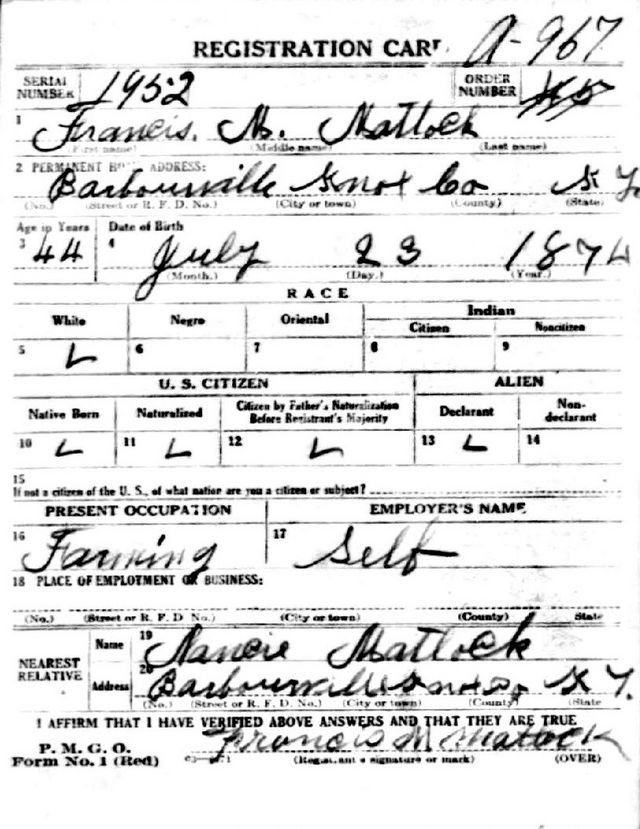 REGISTRATION CARD A-967
SERIAL NUMBER 1952 ORDER NUMBER
1 Francis. M. Matlock
(First name) (Middle name) (Last name)
2 PERMANENT HOME ADDRESS:
Barbourville Knox Co Ky
(No.) (Street or R. F. D. No.) (City or town) (County) (State)
Age in Years Date of Birth
3 44 4 July 23 1874
(Month.) (Day.) (Year.)
RACE
White Negro Oriental Indian
Citizen Noncitizen
5 L 6 7 8 9
U. S. CITIZEN ALIEN
Native Born Naturalized Citizen by Father's Naturalization Before Registrant's Majority Declarant Non-declarant
10 L 11 L 12 L 13 L 14
15
If not a citizen of the U. S., of what nation are you a citizen or subject?
PRESENT OCCUPATION EMPLOYER'S NAME
16 Farming 17 Self
18 PLACE OF EMPLOYMENT OR BUSINESS:
(No.) (Street or R. F. D No.) (City or town) (County) State
NEAREST RELATIVE Name 19 Nancie Matlock
Address 20 Barbourville Knox Co Ky.
(No.) (Street or R. F. D. No.) (City or town) (County) (State
I AFFIRM THAT I HAVE VERIFIED ABOVE ANSWERS AND THAT THEY ARE TRUE
P. M. G. O.
Form No. 1 (Red) Francis M Matlock
(Registrant's signature or mark) (OVER)